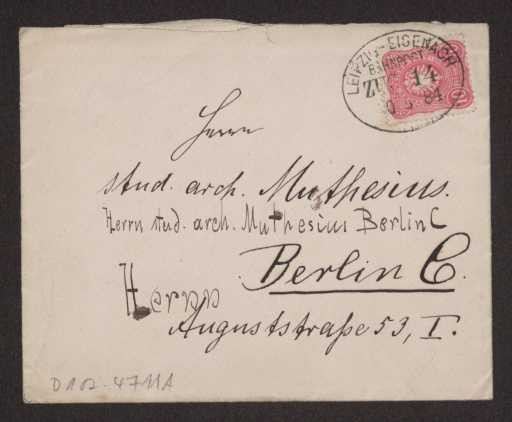 LEIPZIG-EISENACH
BAHNPOST
ZUG 14
5 84
Herrn
stud. arch. Muthesius.
Herrn stud. arch. Muthesius Berlin C
Berlin C.
Herrn
Auguststraße 53, I.
D102-4711A